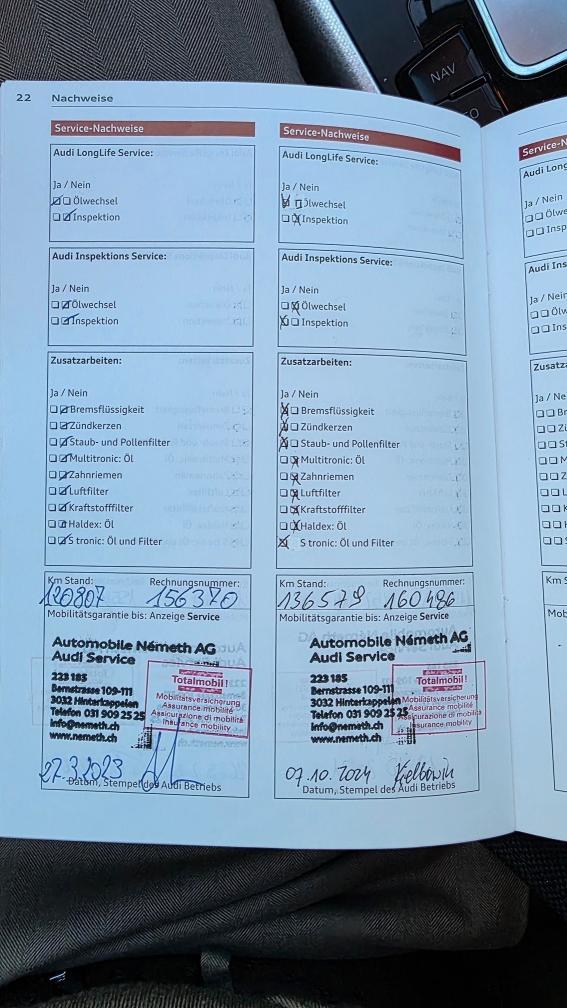 NAV
22 Nachweise
Service-Nachweise
Audi LongLife Service:
Ja / Nein
Ölwechsel
Inspektion
Audi Inspektions Service:
Ja / Nein
Ölwechsel
Inspektion
Zusatzarbeiten:
Ja / Nein
Bremsflüssigkeit
Zündkerzen
Staub- und Pollenfilter
Multitronic: Öl
Zahnriemen
Luftfilter
Kraftstofffilter
Haldex: Öl
S tronic: Öl und Filter
Km Stand: Rechnungsnummer:
120807 156370
Mobilitätsgarantie bis: Anzeige Service
Automobile Németh AG
Audi Service
223 185
Bernstrasse 109-111
3032 Hinterkappelen
Telefon 031 909 25 25
info@nemeth.ch
www.nemeth.ch
Totalmobil!
Mobilitätsversicherung
Assurance mobilité
Assicurazione di mobilità
Insurance mobility
27.3.2023
Datum, Stempel des Audi Betriebs
Service-Nachweise
Audi LongLife Service:
Ja / Nein
Ölwechsel
Inspektion
Audi Inspektions Service:
Ja / Nein
Ölwechsel
Inspektion
Zusatzarbeiten:
Ja / Nein
Bremsflüssigkeit
Zündkerzen
Staub- und Pollenfilter
Multitronic: Öl
Zahnriemen
Luftfilter
Kraftstofffilter
Haldex: Öl
S tronic: Öl und Filter
Km Stand: Rechnungsnummer:
136579 160486
Mobilitätsgarantie bis: Anzeige Service
Automobile Németh AG
Audi Service
223 185
Bernstrasse 109-111
3032 Hinterkappelen
Telefon 031 909 25 25
info@nemeth.ch
www.nemeth.ch
Totalmobil!
Mobilitätsversicherung
Assurance mobilité
Assicurazione di mobilità
Insurance mobility
07.10.2024
Datum, Stempel des Audi Betriebs
Service-N
Audi Long
Ja / Nein
Ölwe
Insp
Audi Ins
Ja / Nein
Ölw
Ins
Zusatza
Ja / Ne
Br
Zü
St
M
Z
L
K
Km S
Mob